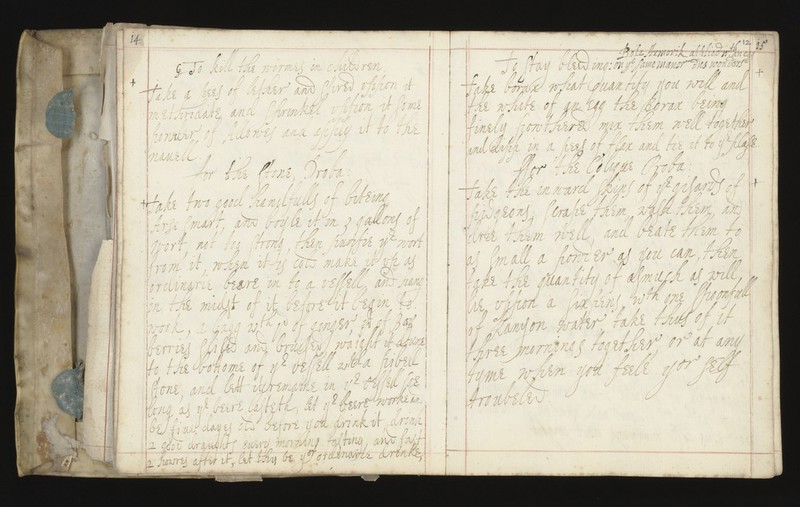 14
To kill the wormes in children
Take a peece of leather and spred uppon it
methridate and sprinkel uppon it some
powder of Alloways and apply it to the
navell
for the stone, Proba:
Take two good handfulls of biteing
Arse smart, and boyle it in 3 gallons of
wort, not too strong, then runne ye wort
from it, when it is cold make it up as
ordinarie beere in to a vessell, and hang
in the midst of it before it begin to
work, 2 bags wth of ginger, of bay
berries sliced and brused, waight it downe
to the bottome of ye vessell with a pibell
stone, and lett it remaine in ye vessell soe
long as ye beere lasteth, let ye beere worke
be four dayes old before you drink it, drink
2 good draughts every morning fasting, and fast
2 howres after it, let this be yor ordinarie drinke,
12 15
Bole Armonik
To stay bleeding: of same manor
Take borax what quantity you will and
the white of an egg the borax being
finely powthered mix them well together
and dipp in a peec of flax and tie it to ye place
ffor the Colique Proba:
Take the inward skins of ye gisards of
pidgeons, scrape them, wash them, and
drie them well, and beate them to
as small a powder as you can, then
take the quantity of asmuch as will
lie uppon a sixpens, wth one spoonfull
of water, take thus of it
three mornings together or at any
tyme when you feele yor self
troubeled